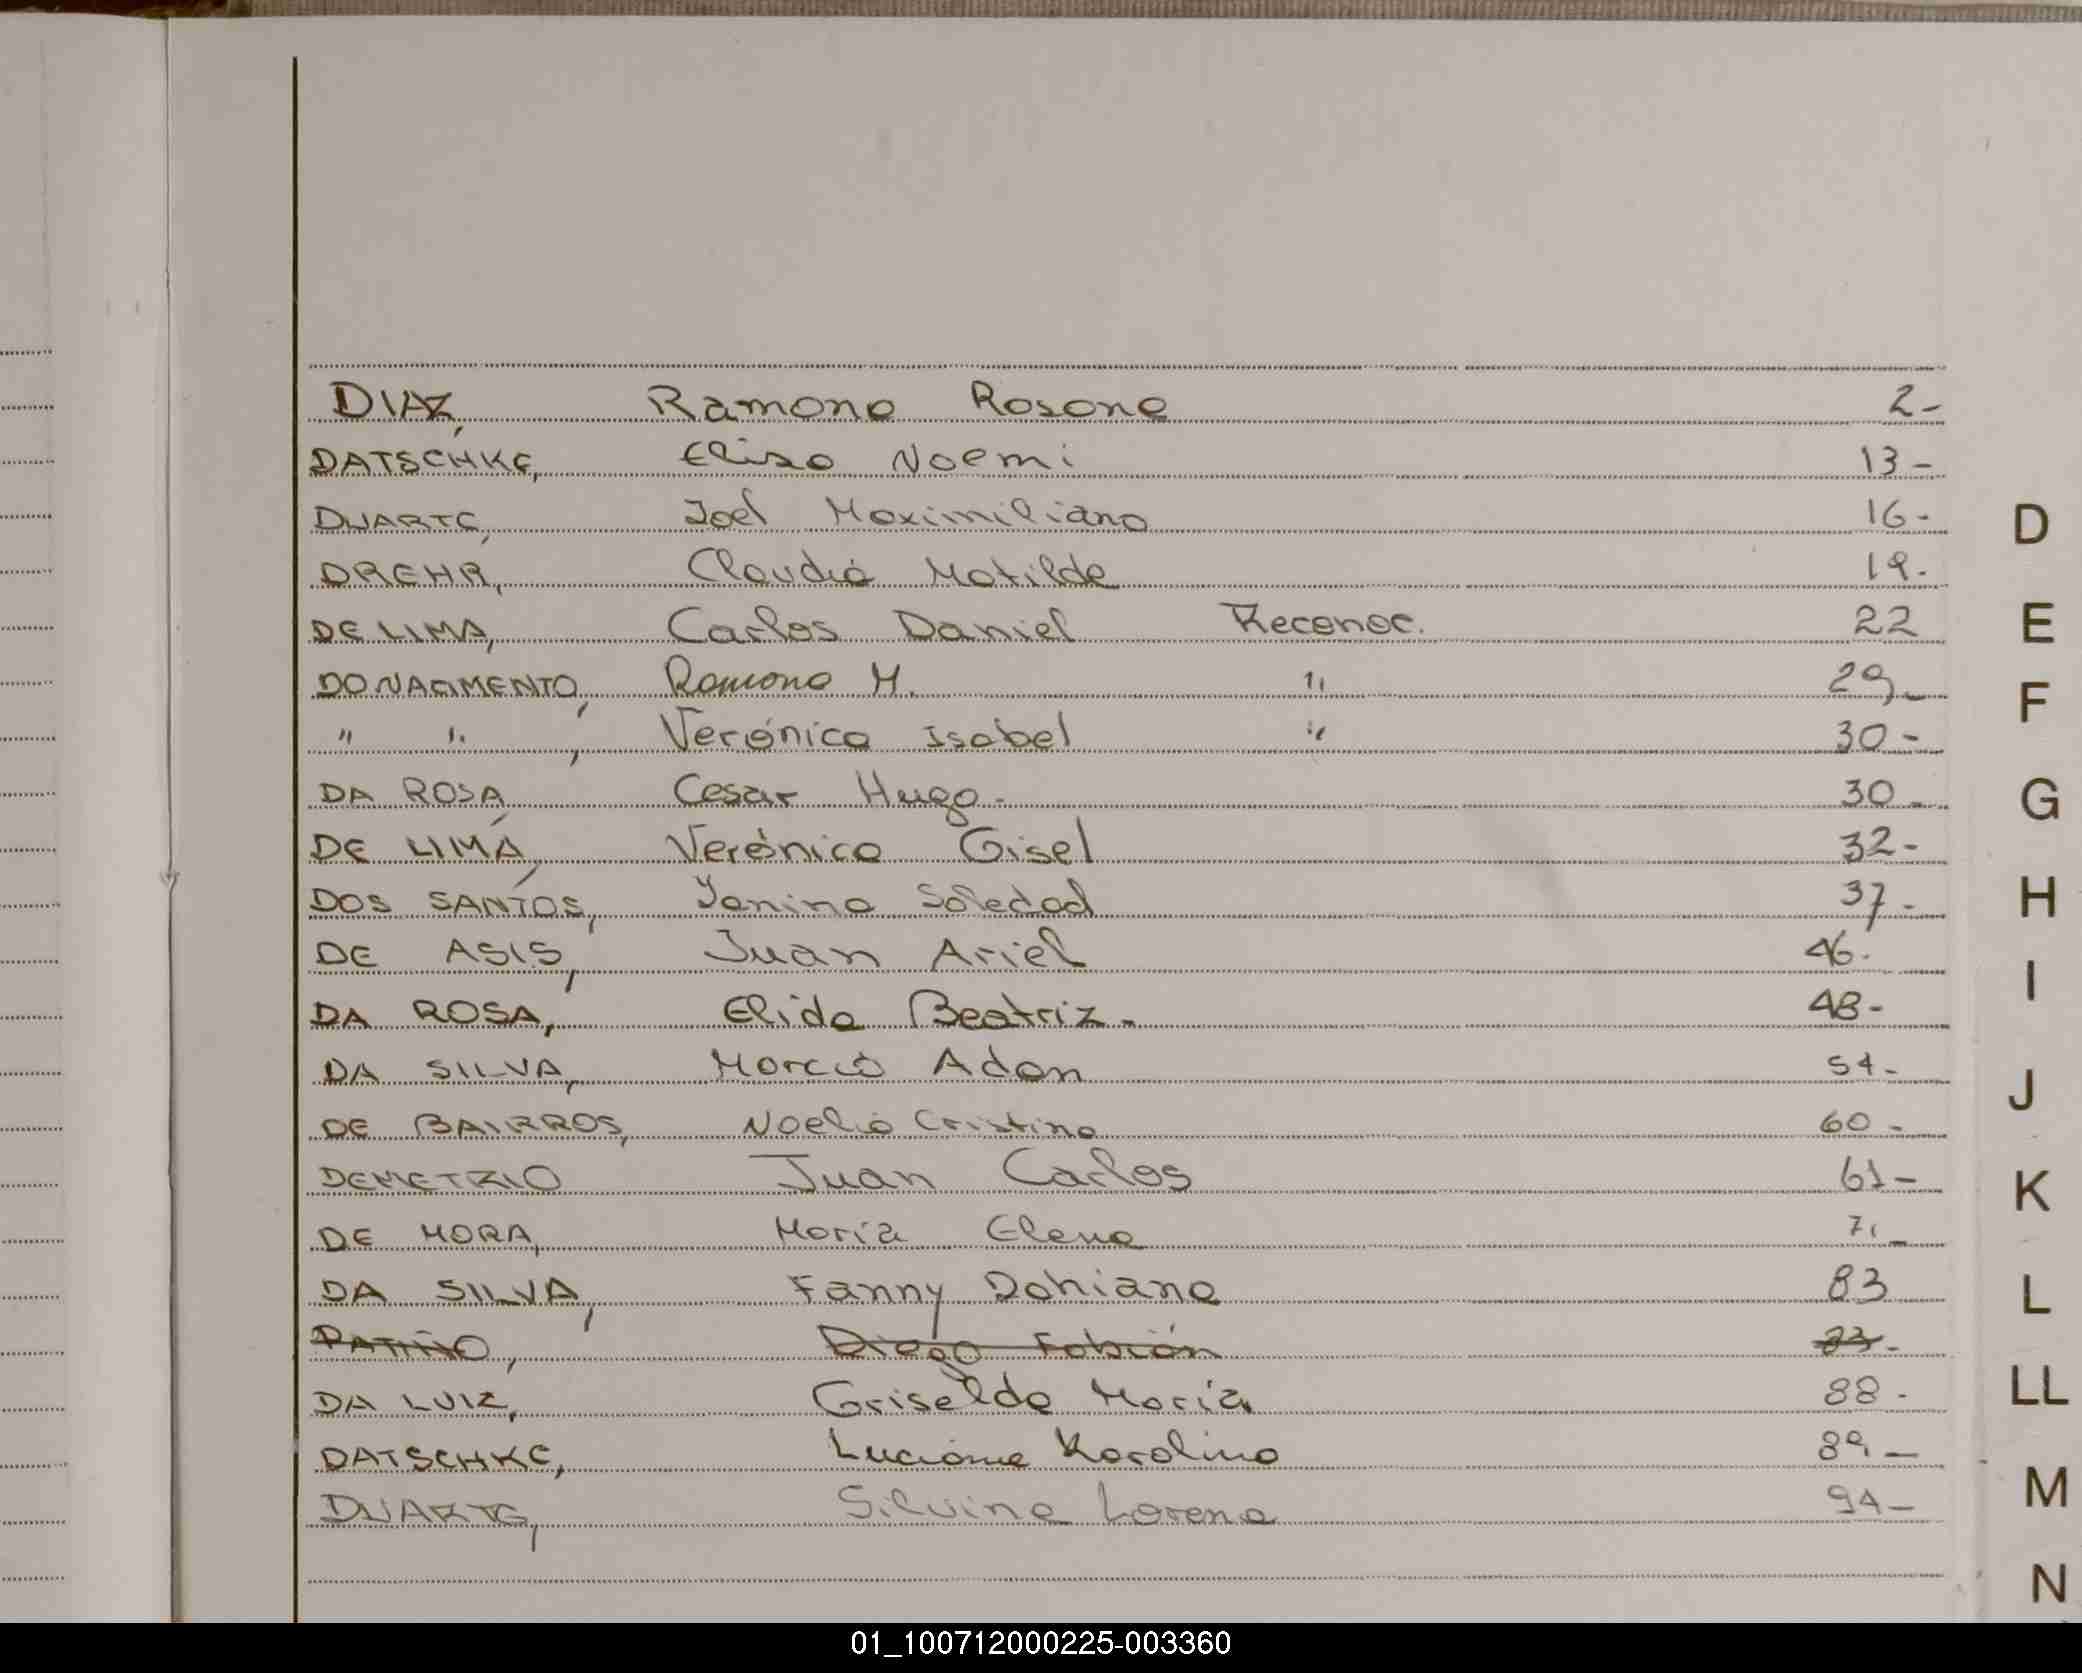 DIAZ, Ramona Rosana 2-
DATSCHKE, Elisa Noemi 13-
DUARTE, Joel Maximiliano 16-
DREHR, Claudia Matilde 19.
DE LIMA, Carlos Daniel Reconoc. 22
DO NACIMENTO, Ramona M. " 29-
" " , Verónica Isabel " 30-
DA ROSA, Cesar Hugo. 30-
DE LIMA, Verónica Gisel 32-
DOS SANTOS, Yanina Soledad 37-
DE ASIS, Juan Ariel 46.
DA ROSA, Elida Beatriz. 48-
DA SILVA, Marcio Adan 54-
DE BAIRROS, Noelia Cristina 60-
DEMETRIO Juan Carlos 61-
DE MORA, María Elena 71-
DA SILVA, Fanny Dahiana 83
PATIÑO, Diego Fabián 83-
DA LUIZ, Griselda María 88-
DATSCHKE, Luciana Karolina 89-
DUARTE, Silvina Lorena 94-
D
E
F
G
H
I
J
K
L
LL
M
N
01_100712000225-003360